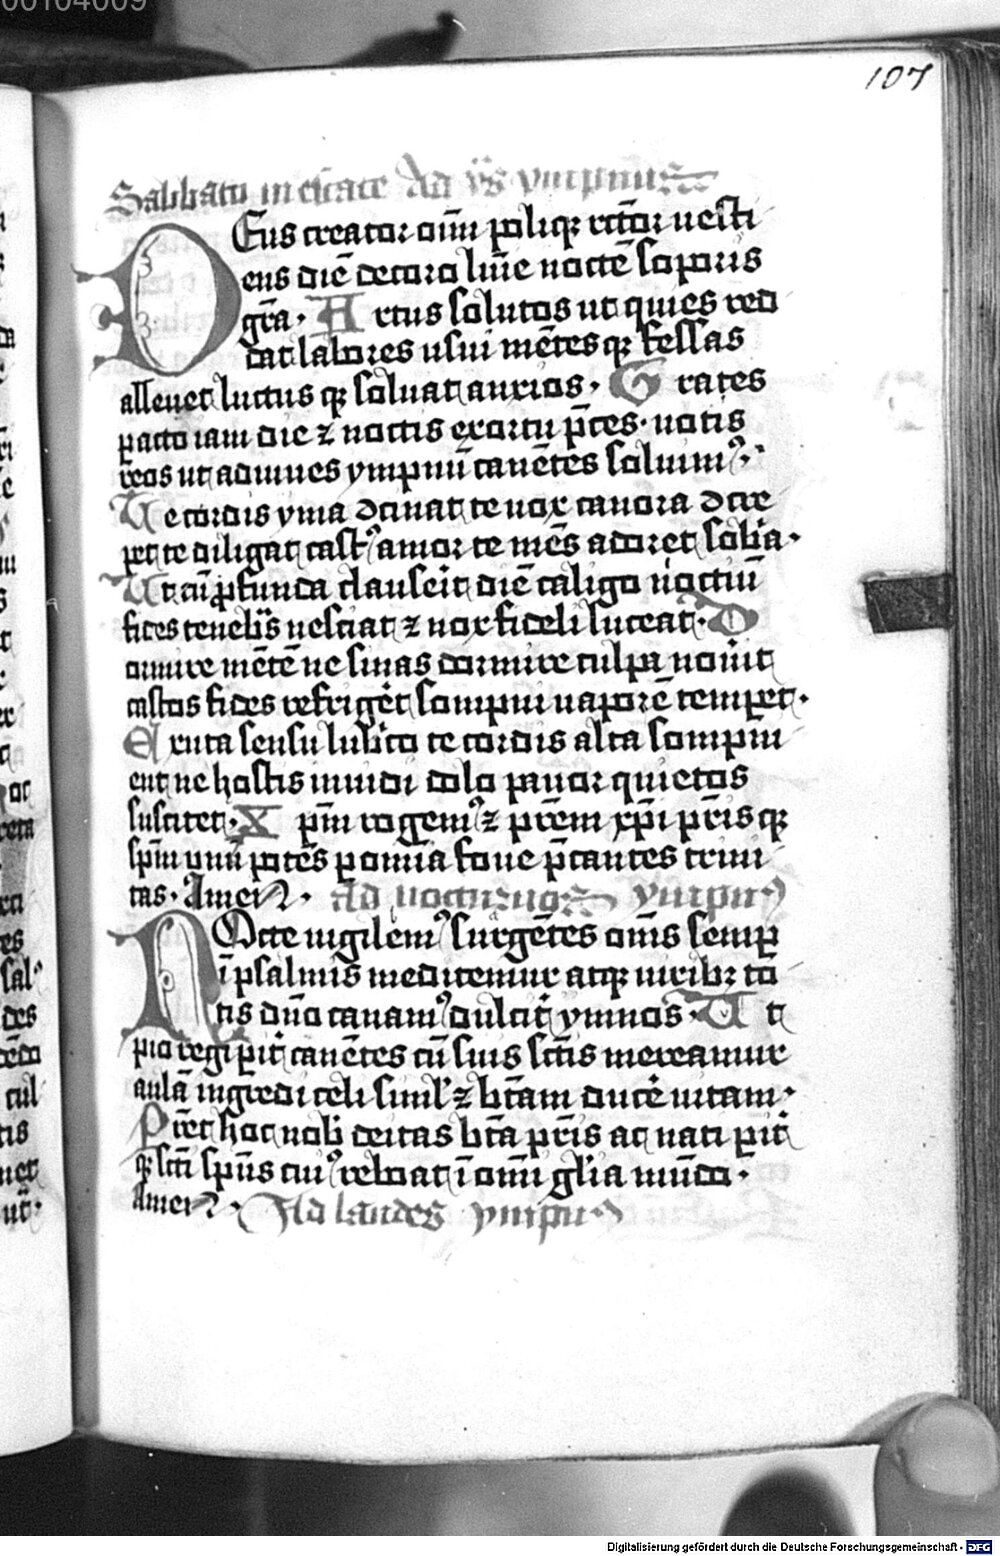 00104009
107
Sabbato in estate Ad vs̄ ympnus
DEus creator om̄i poliq; rector uesti
ens diē decoro lumīe noctē soporis
gr̄a. Artus solutos ut quies red
dat laboris usui mētesq; fessas
alleuet luctusq; soluat anxios. Grates
pacto iam die et noctis exortu p̄ces. uotis
reos ut adiuues ympnū canētes soluim9
Te cordis yma cīnat te uox canora cre
pet te diligat cast9 amor te mēs adoret sobīa.
Ut cū pfunda clauseīt diē caligo noctiū
fides tenebīs nesciat et nox fideli luceat. D
ormire mētē ne sinas dormire culpa nouīt
castos fides refrigēt sompni uaporē temp̄et.
Exuta sensu lubīco te cordis alta sompni
ent ne hostis inuidi dolo pauor quietos
suscitet. X p̄m rogem9 et p̄rēm xp̄i p̄risq;
sp̄m unū potēs p om̄ia foue p̄cantes trini
tas. Amen. Ad nocturnos ympn9
NOcte uigilem9 surgētes om̄s semp
ī psalmis meditemur atq; uirib; to
tis dn̄o canam9 dulcit̄ ymnos. Ut
pio regi pit̄ canētes cū suis sc̄tis mereamur
aulā ingredi celi simul et bt̄am ducē uitam.
Pr̄et hoc nob̄ deitas bt̄a p̄ris ac nati pit̄
q; sc̄ti sp̄us cui9 reboat ī om̄i glīa mūdo.
Amen. Ad laudes ympn9
Digitalisierung gefördert durch die Deutsche Forschungsgemeinschaft - DFG